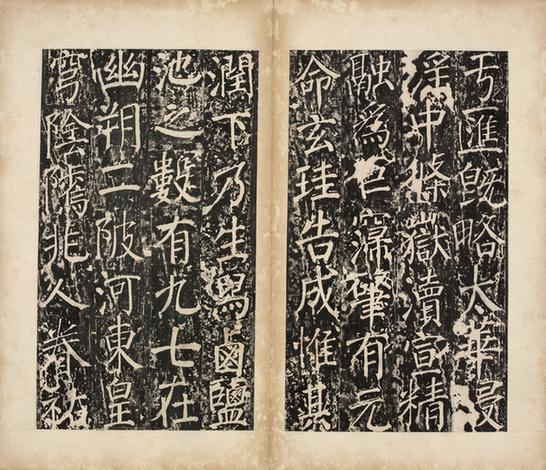 匯既略太華浸
淫中條嶽瀆宣精
融爲巨肇有元
命玄珪告成惟其
潤下乃生焉鹵鹽
池之數有九七在
幽朔二陂河東皇
穹陰騭兆人眷祐